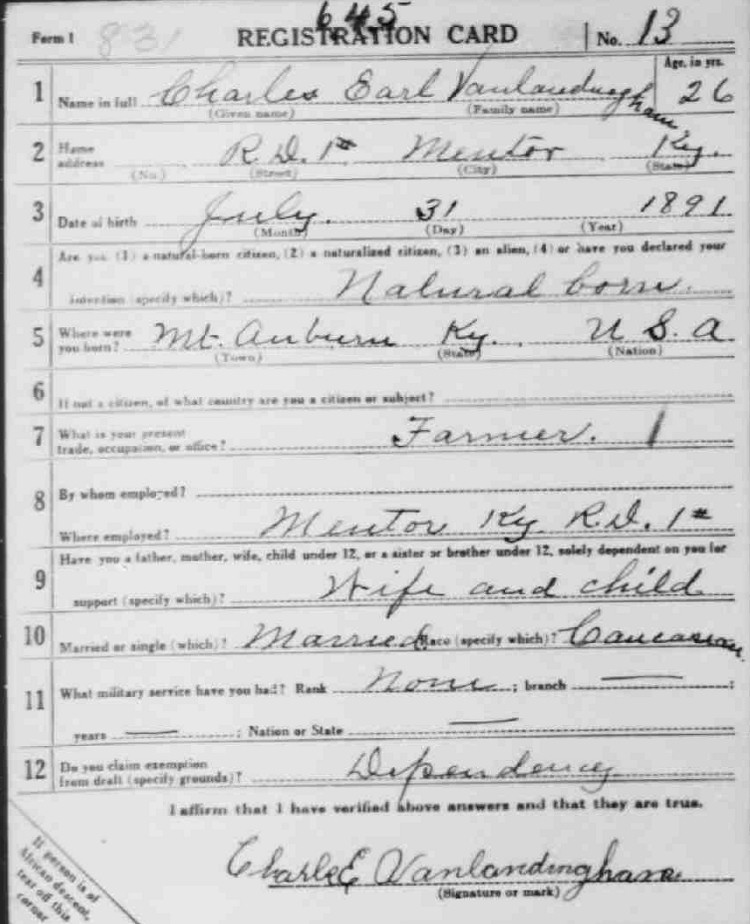 645
Form 1 831 REGISTRATION CARD No. 13
Age, in yrs.
1 Name in full Charles Earl Vanlandingham 26
(Given name) (Family name)
2 Home address R.D. 1# Mentor Ky.
(No.) (Street) (City) (State)
3 Date of birth July. 31 1891
(Month) (Day) (Year)
Are you (1) a natural-born citizen, (2) a naturalized citizen, (3) an alien, (4) or have you declared your
4 intention (specify which)? Natural born.
5 Where were you born? Mt. Auburn Ky. U S. A
(Town) (State) (Nation)
6 If not a citizen, of what country are you a citizen or subject?
7 What is your present trade, occupation, or office? Farmer. 1
8 By whom employed?
Where employed? Mentor Ky R.D. 1#
Have you a father, mother, wife, child under 12, or a sister or brother under 12, solely dependent on you for
9 support (specify which)? Wife and child
10 Married or single (which)? Married Race (specify which)? Caucasian
11 What military service have you had? Rank None ; branch — ;
years — ; Nation or State —
12 Do you claim exemption from draft (specify grounds)? Dependency
I affirm that I have verified above answers and that they are true.
Charl E Vanlandingham
(Signature or mark)
If person is of
African descent,
tear off this
corner